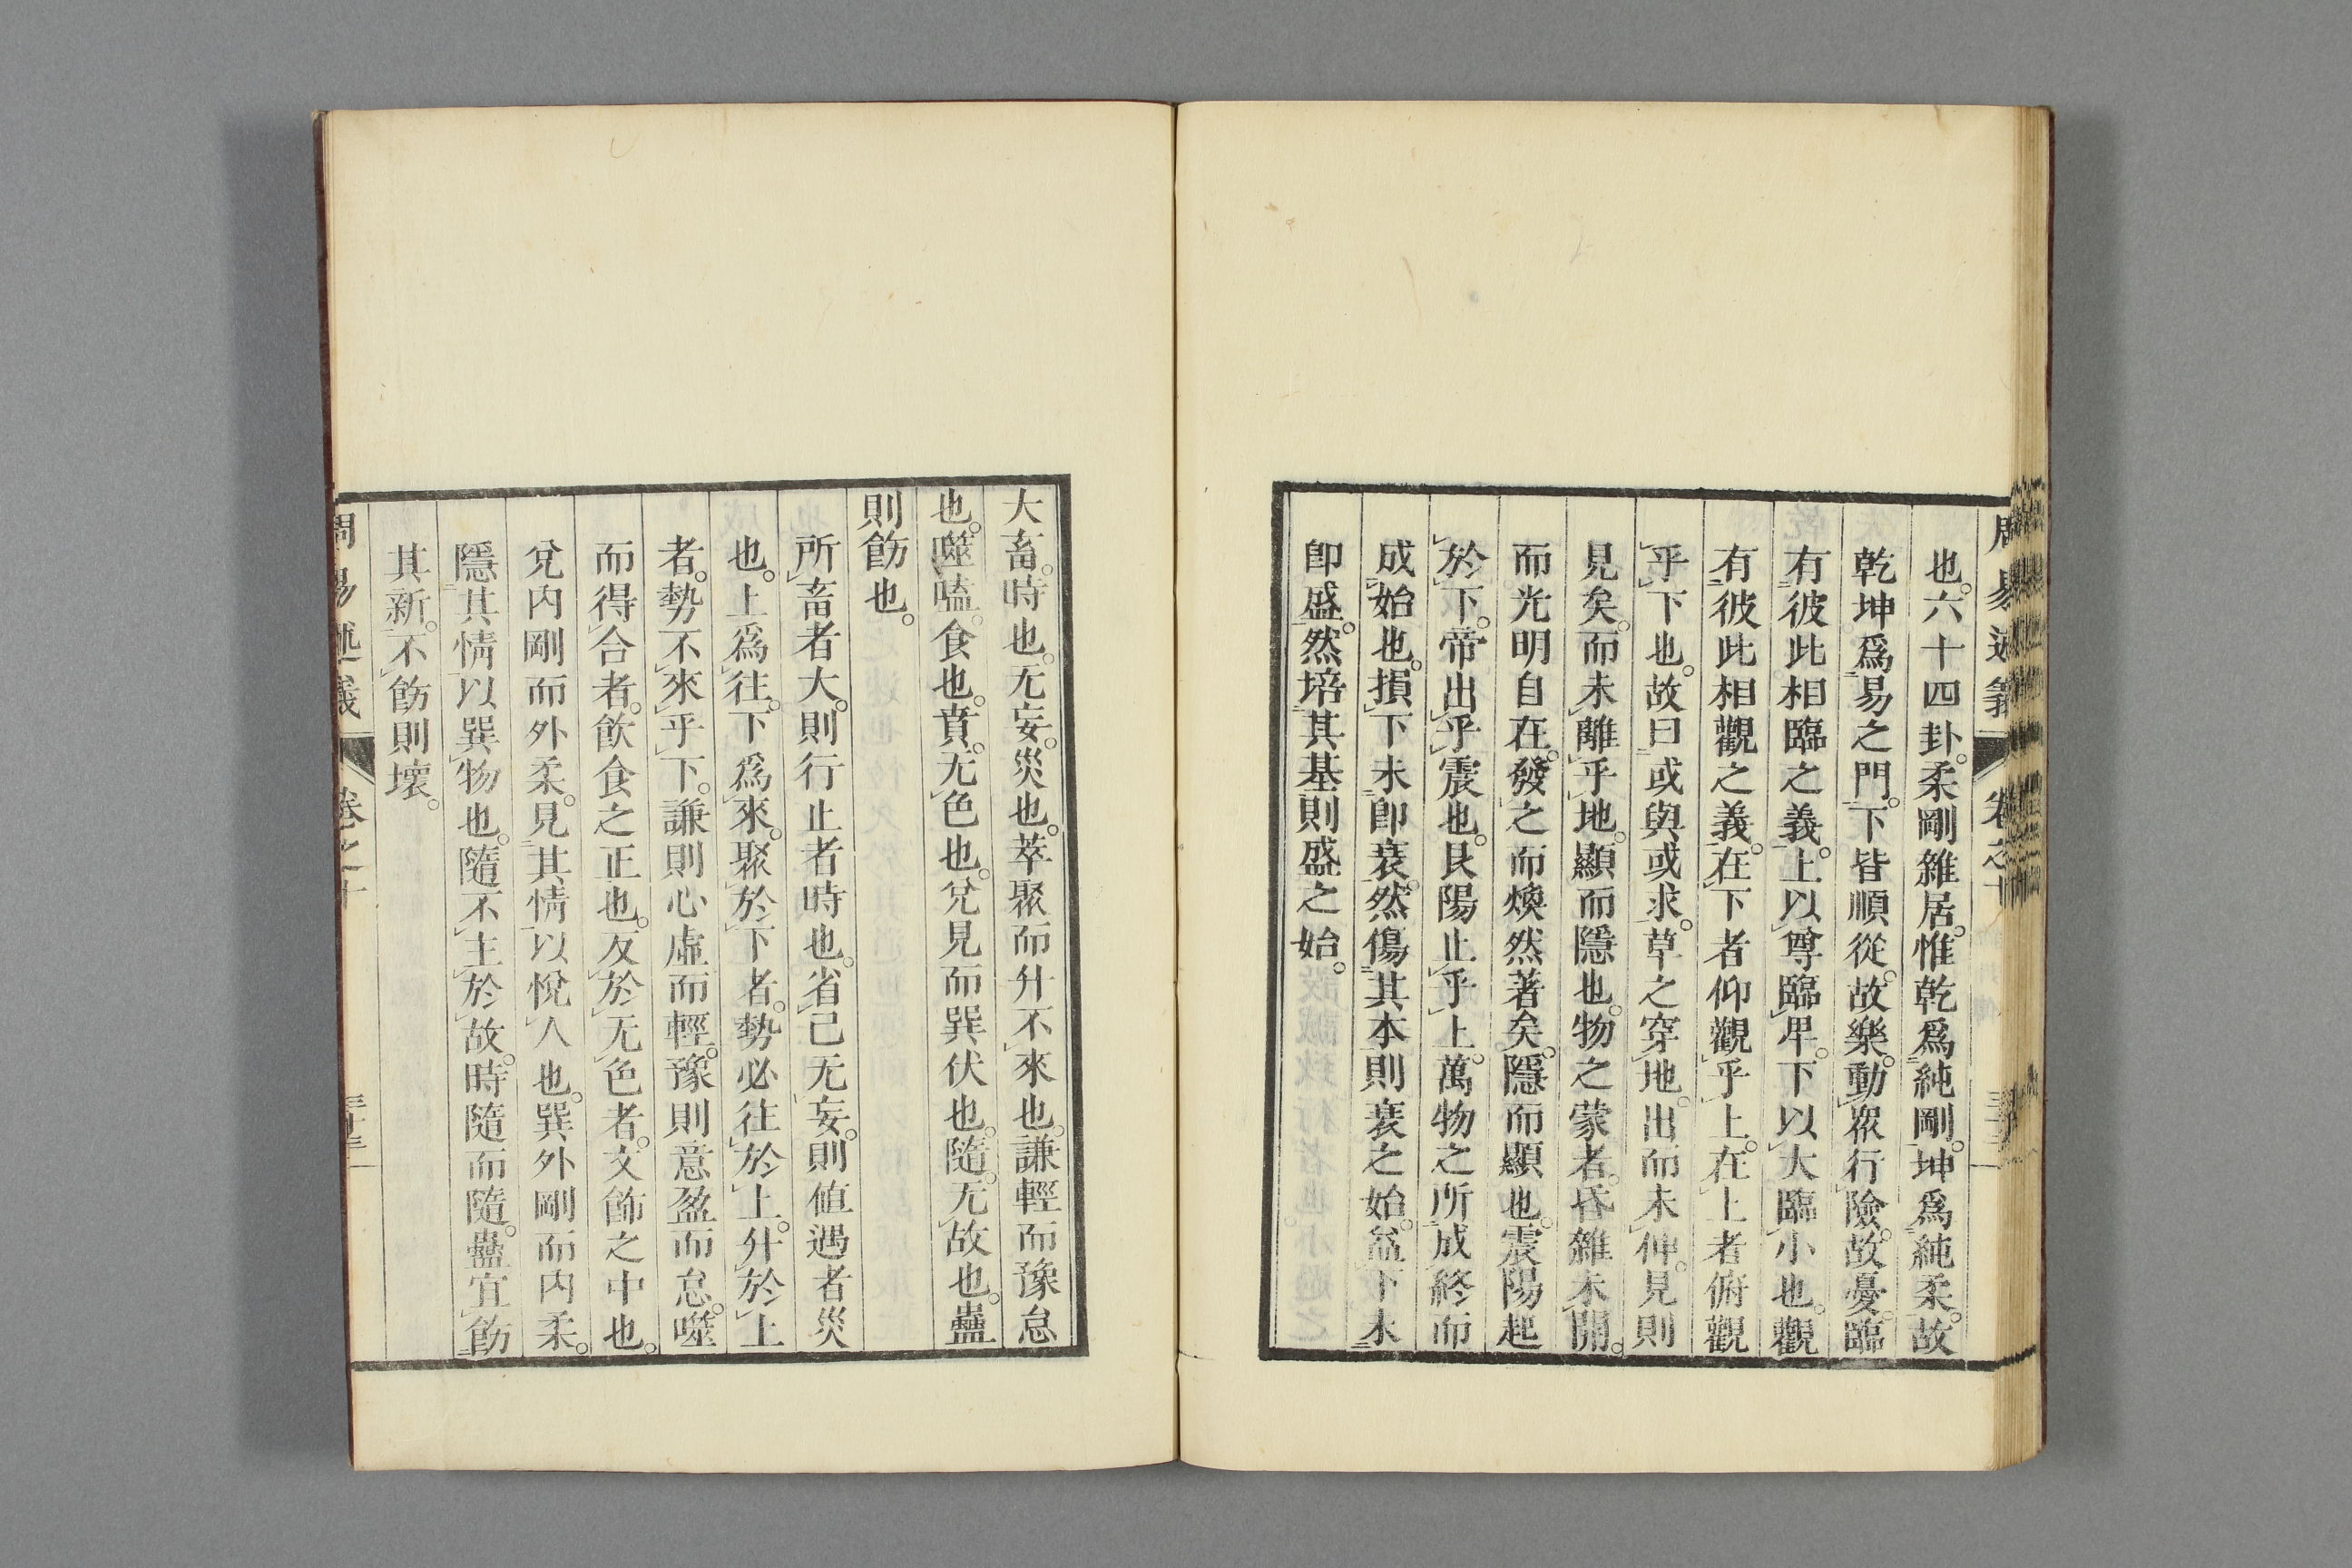 也。六十四卦。柔剛雜居。惟乾爲純剛。坤爲純柔。故
乾坤爲易之門。下皆順從。故樂。動衆行險。故憂。臨
有彼此相臨之義。上以尊臨卑。下以大臨小也。觀
有彼此相觀之義。在下者仰觀乎上。在上者俯觀
乎下也。故曰或與或求。草之穿地。出而未伸。見則
見矣。而未離乎地。顯而隱也。物之蒙者。昏雜未開。
而光明自在。發之而煥然著矣。隱而顯也。震陽起
於下。帝出乎震也。艮陽止乎上。萬物之所成終而
成始也。損下未卽衰。然傷其本則衰之始。益下未
卽盛。然培其基則盛之始。
大畜。時也。无妄。災也。萃聚而升不來也。謙輕而豫怠
也。噬嗑。食也。賁。无色也。兌見而巽伏也。隨。无故也。蠱
則飭也。
所畜者大。則行止者時也。省己无妄。則値遇者災
也。上爲往。下爲來。聚於下者。勢必往於上。升於上
者。勢不來乎下。謙則心虛而輕。豫則意盈而怠。噬
而得合者。飮食之正也。反於无色者。文飾之中也。
兌內剛而外柔。見其情以悅人也。巽外剛而內柔。
隱其情以巽物也。隨不主於故。時隨而隨。蠱宜飭
其新。不飭則壞。
周易述義　卷之十